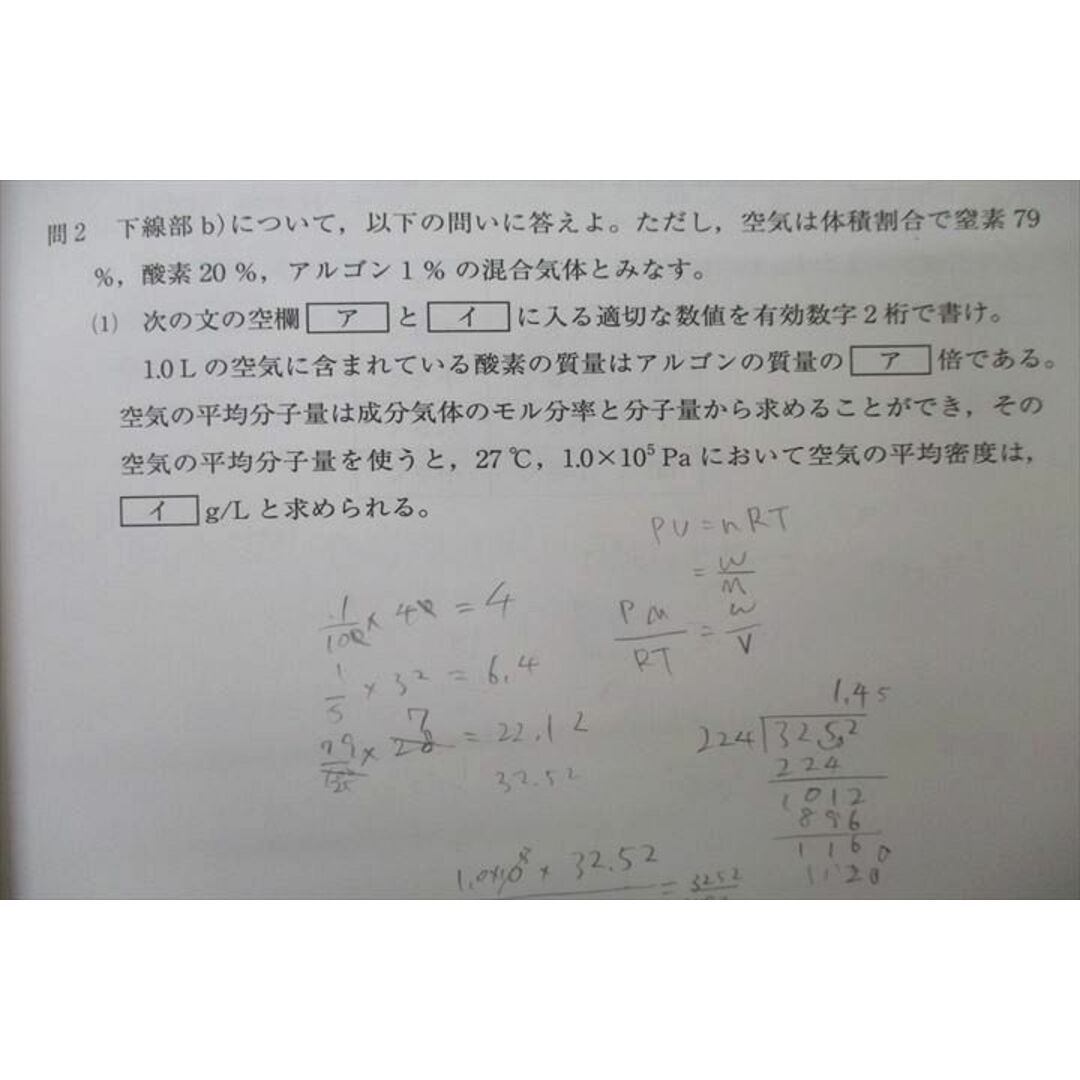 問2 下線部 b)について，以下の問いに答えよ。ただし，空気は体積割合で窒素 79
%，酸素 20 %，アルゴン 1 % の混合気体とみなす。
(1) 次の文の空欄 ア と イ に入る適切な数値を有効数字 2 桁で書け。
1.0 L の空気に含まれている酸素の質量はアルゴンの質量の ア 倍である。
空気の平均分子量は成分気体のモル分率と分子量から求めることができ，その
空気の平均分子量を使うと，27 ℃，1.0×10⁵ Pa において空気の平均密度は，
イ g/L と求められる。
PV = nRT
= W/M
1/100 × 40 = 4
PM/RT = W/V
1/5 × 32 = 6.4
79/25 × 7 = 22.12
32.52
1.45
224 3252
224
1012
896
1160
1120
× 32.52 = 3252